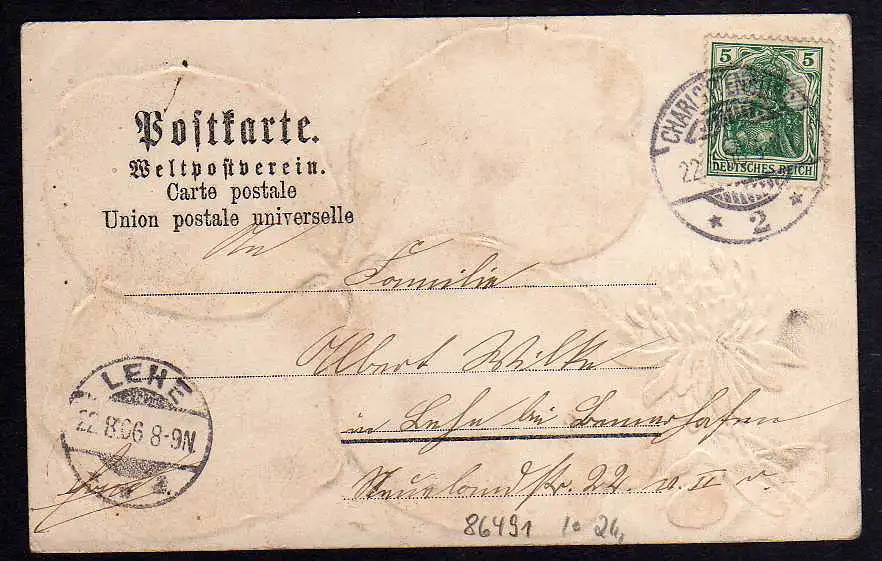 Postkarte.
Weltpostverein.
Carte postale
Union postale universelle
5 5
DEUTSCHES REICH
CHARLOTTENBURG
22
* 2 *
An
Familie
Albert Wilke
in Lehe bei Bremerhafen
str. 22. II
LEHE
22.8.06 8-9N
86491